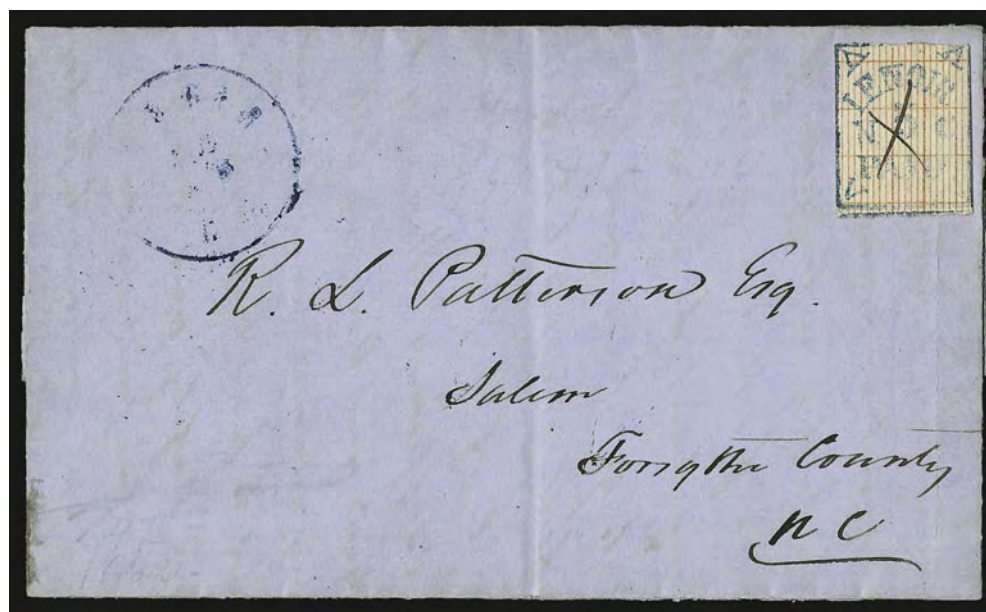 LENOIR
N 5 C
PAID
R. L. Patterson Esq.
Salem
Forsythe County
N C